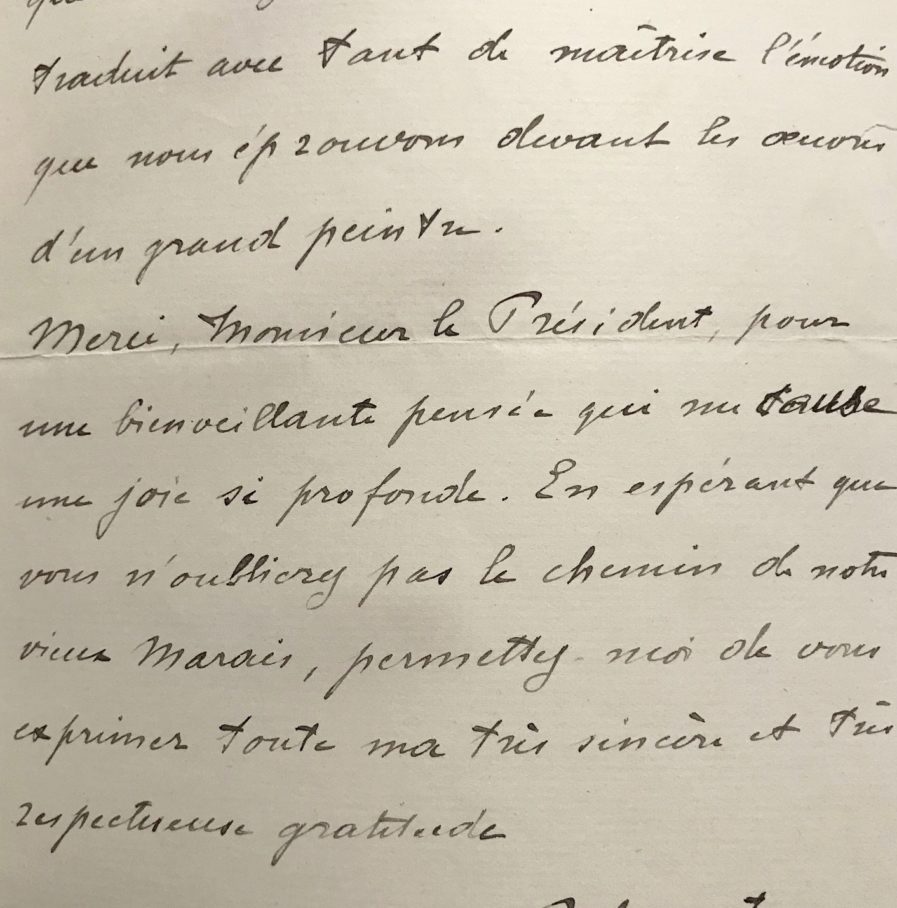 traduit avec tant de maîtrise l'émotion
que nous éprouvons devant les œuvres
d'un grand peintre.
Merci, Monsieur le Président, pour
une bienveillante pensée qui me cause
une joie si profonde. En espérant que
vous n'oublierez pas le chemin de notre
vieux Marais, permettez-moi de vous
exprimer toute ma très sincère et très
respectueuse gratitude